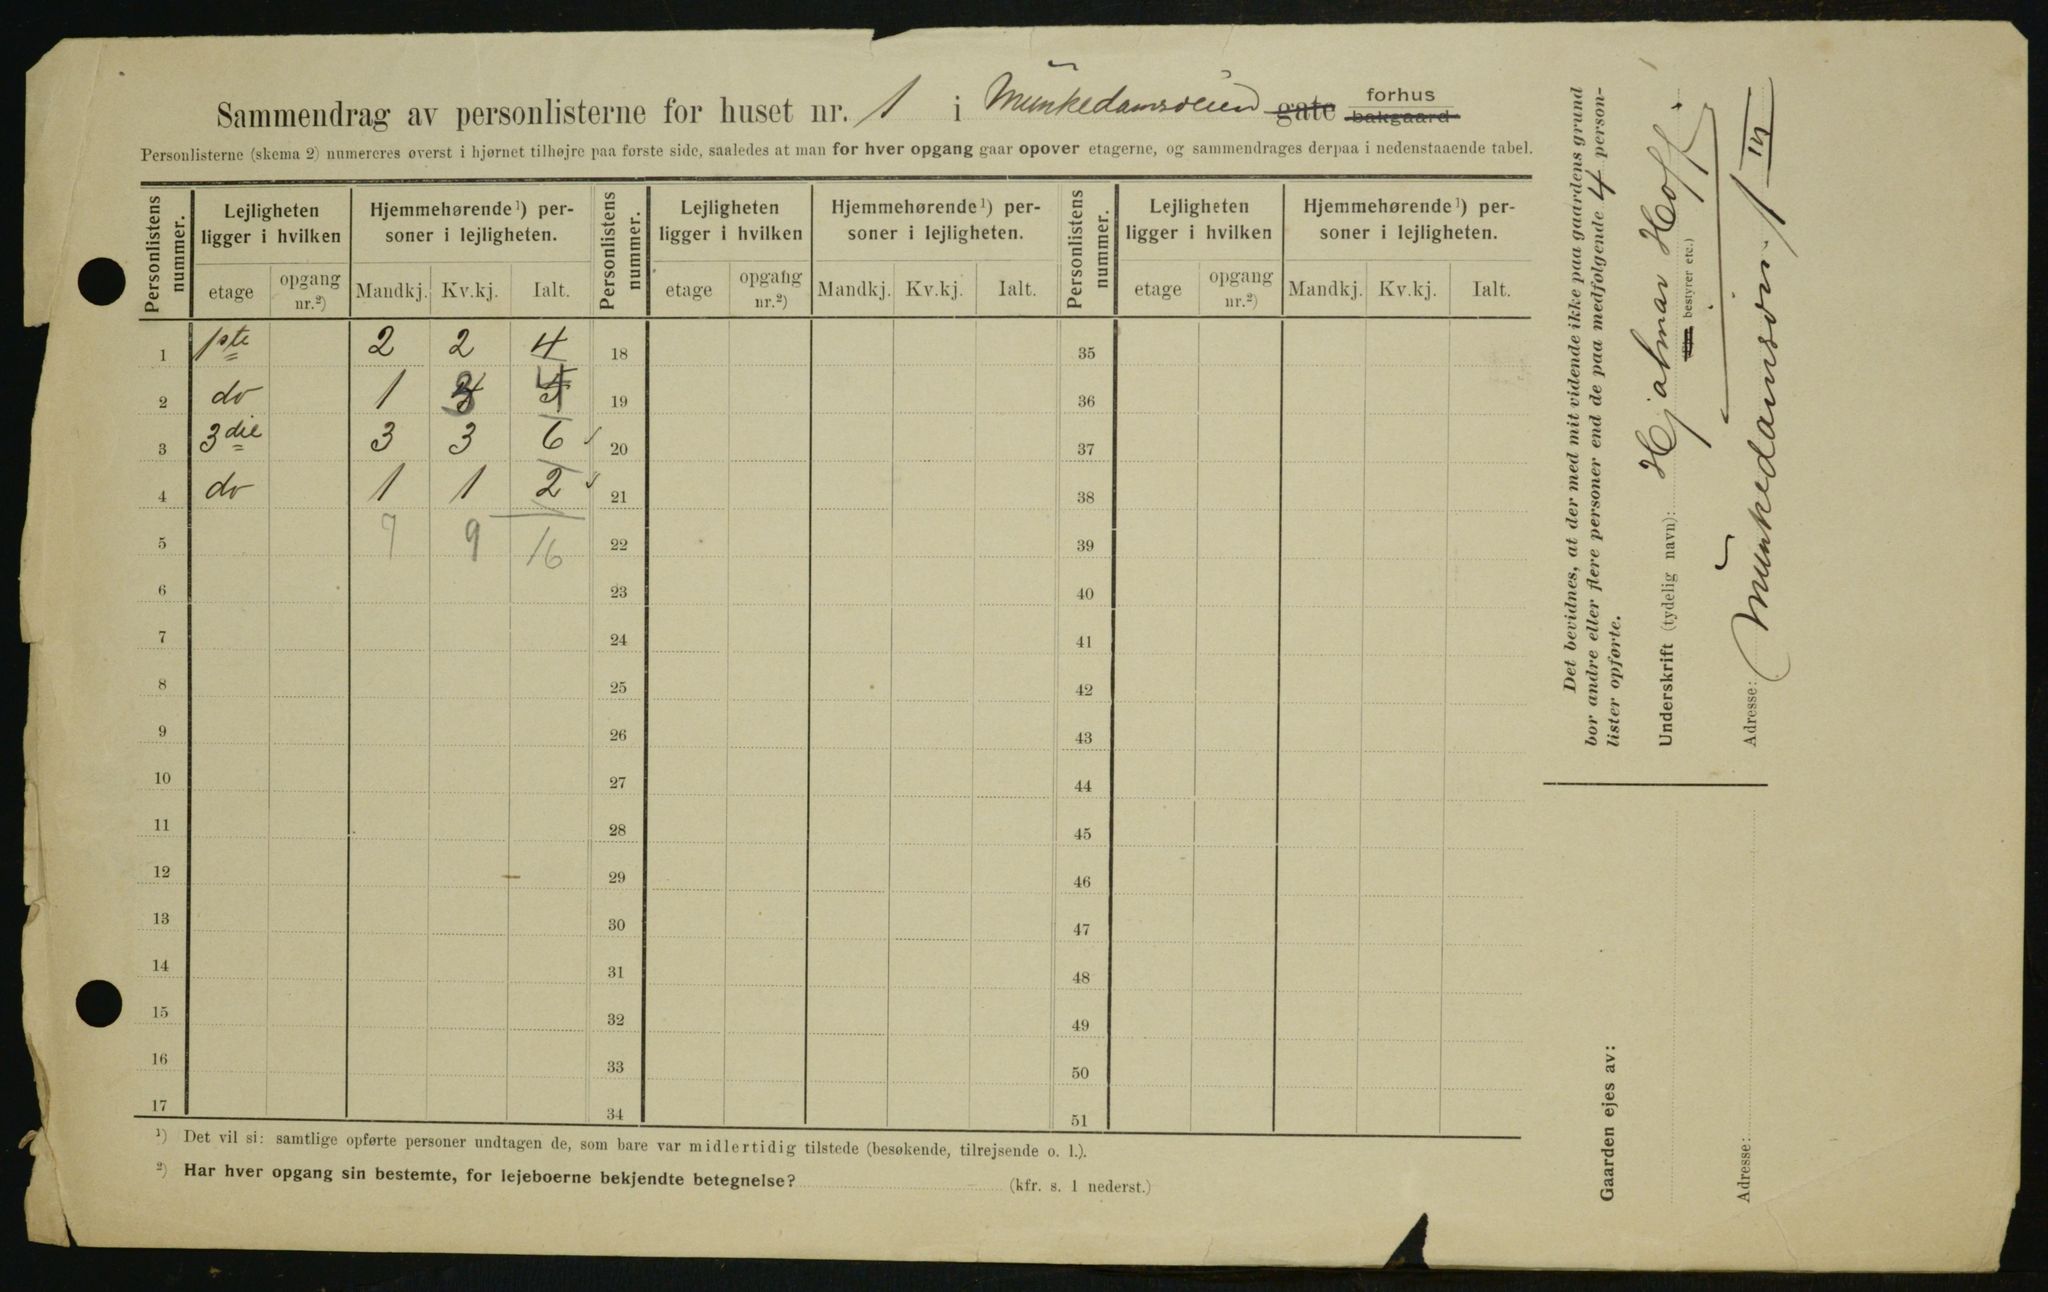 Sammendrag av personlisterne for huset nr. 1 i Munkedamsveien gate forhus bakgaard
Personlisterne (skema 2) numereres øverst i hjørnet tilhøjre paa første side, saaledes at man for hver opgang gaar opover etagerne, og sammendrages derpaa i nedenstaaende tabel.
Personlistens nummer. Lejligheten ligger i hvilken Hjemmehørende¹) personer i lejligheten. Personlistens nummer. Lejligheten ligger i hvilken Hjemmehørende¹) personer i lejligheten. Personlistens nummer. Lejligheten ligger i hvilken Hjemmehørende¹) personer i lejligheten.
etage opgang nr.²) Mandkj. Kv.kj. Ialt. etage opgang nr.²) Mandkj. Kv.kj. Ialt. etage opgang nr.²) Mandkj. Kv.kj. Ialt.
1 1ste 2 2 4 18 35
2 do 1 3 4 19 36
3 3die 3 3 6 20 37
4 do 1 1 2 21 38
5 7 9 16 22 39
6 23 40
7 24 41
8 25 42
9 26 43
10 27 44
11 28 45
12 29 46
13 30 47
14 31 48
15 32 49
16 33 50
17 34 51
¹) Det vil si: samtlige opførte personer undtagen de, som bare var midlertidig tilstede (besøkende, tilrejsende o. l.).
²) Har hver opgang sin bestemte, for lejeboerne bekjendte betegnelse? (kfr. s. 1 nederst.)
Det bevidnes, at der med mit vidende ikke paa gaardens grund
bor andre eller flere personer end de paa medfølgende 4 person-
lister opførte.
Underskrift (tydelig navn): Hjalmar Hoff
bestyrer etc.)
Adresse: Munkedamsvn 1 III
Gaarden ejes av:
Adresse: